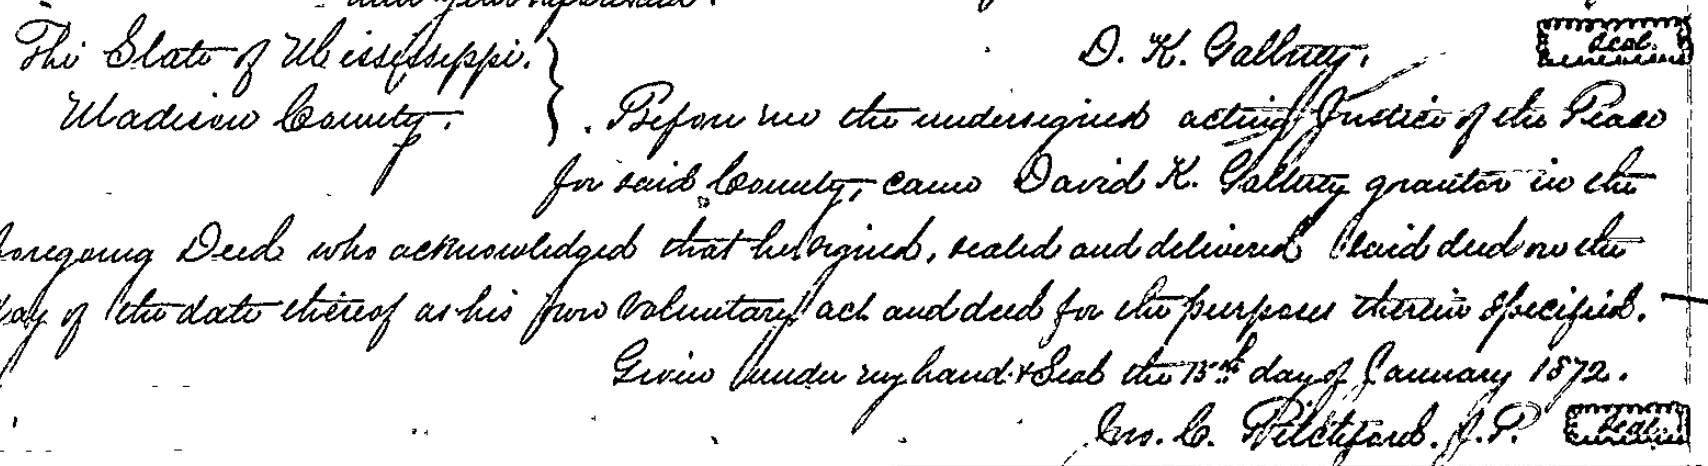 D. K. Galbrey. Seal.
The State of Mississippi.
Madison County. } Before me the undersigned acting Justice of the Peace
for said County, came David K. grantor in the
foregoing Deed who acknowledged that he signed, sealed and delivered said deed on the
day of the date thereof as his free voluntary act and deed for the purposes therein specified.
Given under my hand & Seal the 15th day of January 1872.
Jno. C. Pitchford. J.P. Seal.